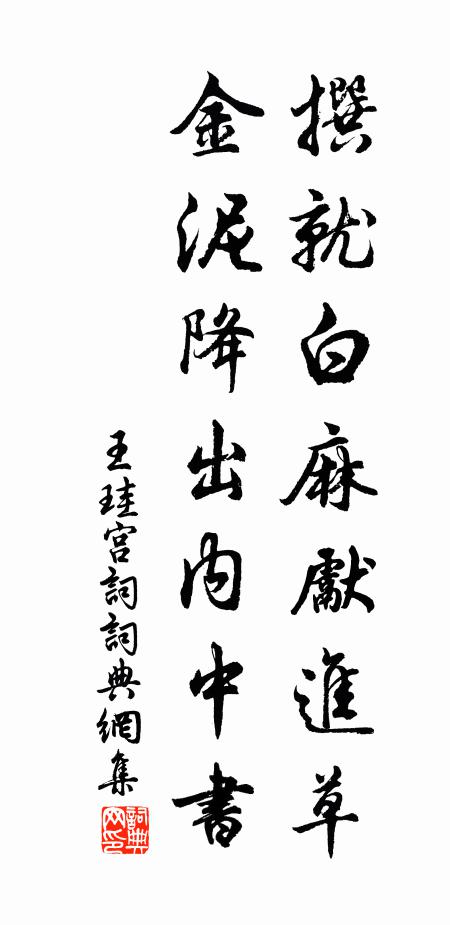 撰就白麻獻進草
金泥降出内中書
王珪宫詞詞典網集
詞典網印